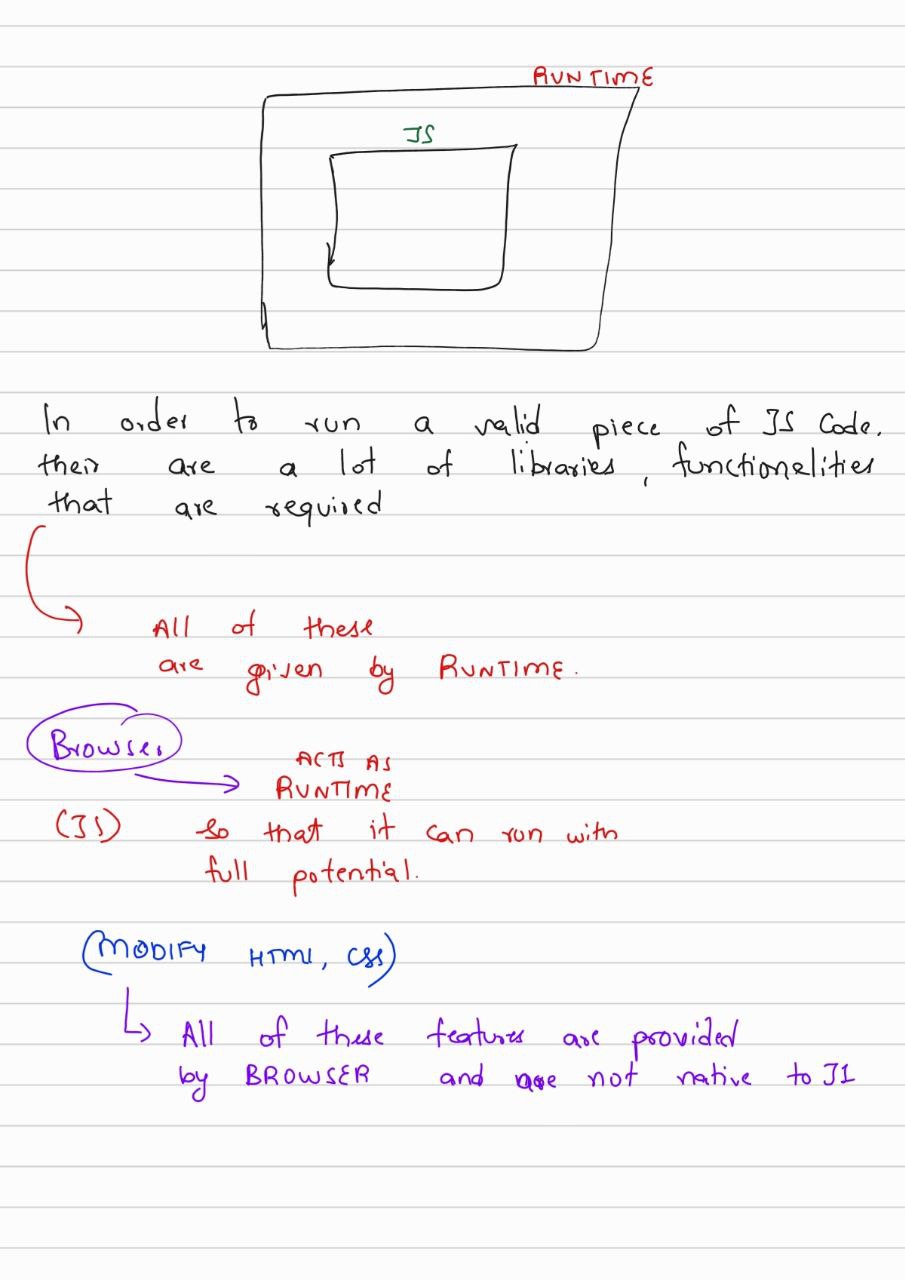 RUNTIME
JS
In order to run a valid piece of JS Code.
their are a lot of libraries, functionalities
that are required
All of these
are given by RUNTIME.
Browser
ACTS AS
RUNTIME
(JS) so that it can run with
full potential.
(MODIFY HTML, CSS)
All of these features are provided
by BROWSER and are not native to JS